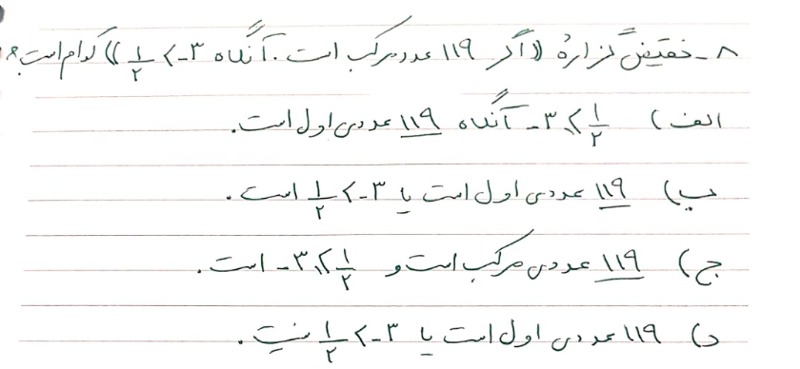 ۸- نقیض گزارهٔ «اگر ۱۱۹ عدد مرکب است. آنگاه ۳- > ۱/۲» کدام است؟
الف) ۱/۲ ⩽ ۳- آنگاه ۱۱۹ عددی اول است.
ب) ۱۱۹ عددی اول است یا ۳- > ۱/۲ است.
ج) ۱۱۹ عددی مرکب است و ۱/۲ ⩽ ۳- است.
د) ۱۱۹ عددی اول است یا ۳- > ۱/۲ نیست.